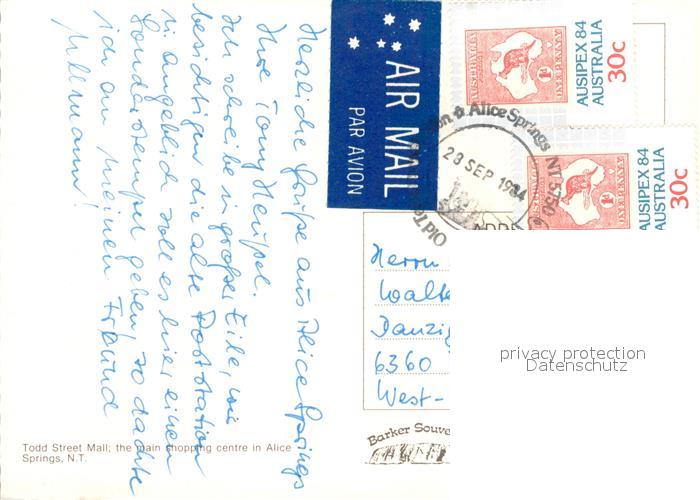 Herzliche Grüße aus Alice Springs
Ihre Tony
Ich schreibe in großer Eile, wir
besichtigen die alte Poststation
in angeblich soll es hier einen
Sonderstempel geben, so dachte
ich an meinen Freund
Ullmann!
AIR MAIL
PAR AVION
AUSTRALIA
ONE PENNY
AUSIPEX 84
AUSTRALIA
30c
AUSTRALIA
ONE PENNY
AUSIPEX 84
AUSTRALIA
30c
Alice Springs NT 5750
28 SEP 1984
Old T
ADD
Herrn
Walte
Danzig
6360
West-
privacy protection
Datenschutz
Todd Street Mall; the main shopping centre in Alice
Springs, N.T.
Barker Souve